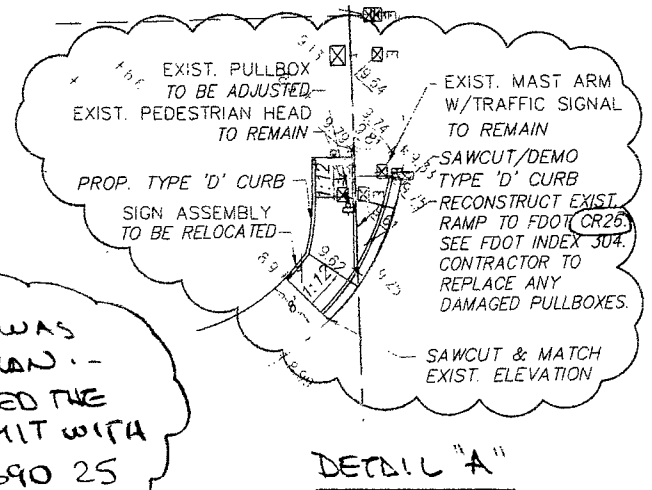 EXIST. PULLBOX
TO BE ADJUSTED
EXIST. PEDESTRIAN HEAD
TO REMAIN
PROP. TYPE 'D' CURB
SIGN ASSEMBLY
TO BE RELOCATED
EXIST. MAST ARM
W/TRAFFIC SIGNAL
TO REMAIN
SAWCUT/DEMO
TYPE 'D' CURB
RECONSTRUCT EXIST.
RAMP TO FDOT CR25.
SEE FDOT INDEX 304.
CONTRACTOR TO
REPLACE ANY
DAMAGED PULLBOXES.
SAWCUT & MATCH
EXIST. ELEVATION
9.13
19.64
9.79
3.74
9.62
1:12
1:12
WAS
ED THE
MIT WITH
690 25
DETAIL "A"